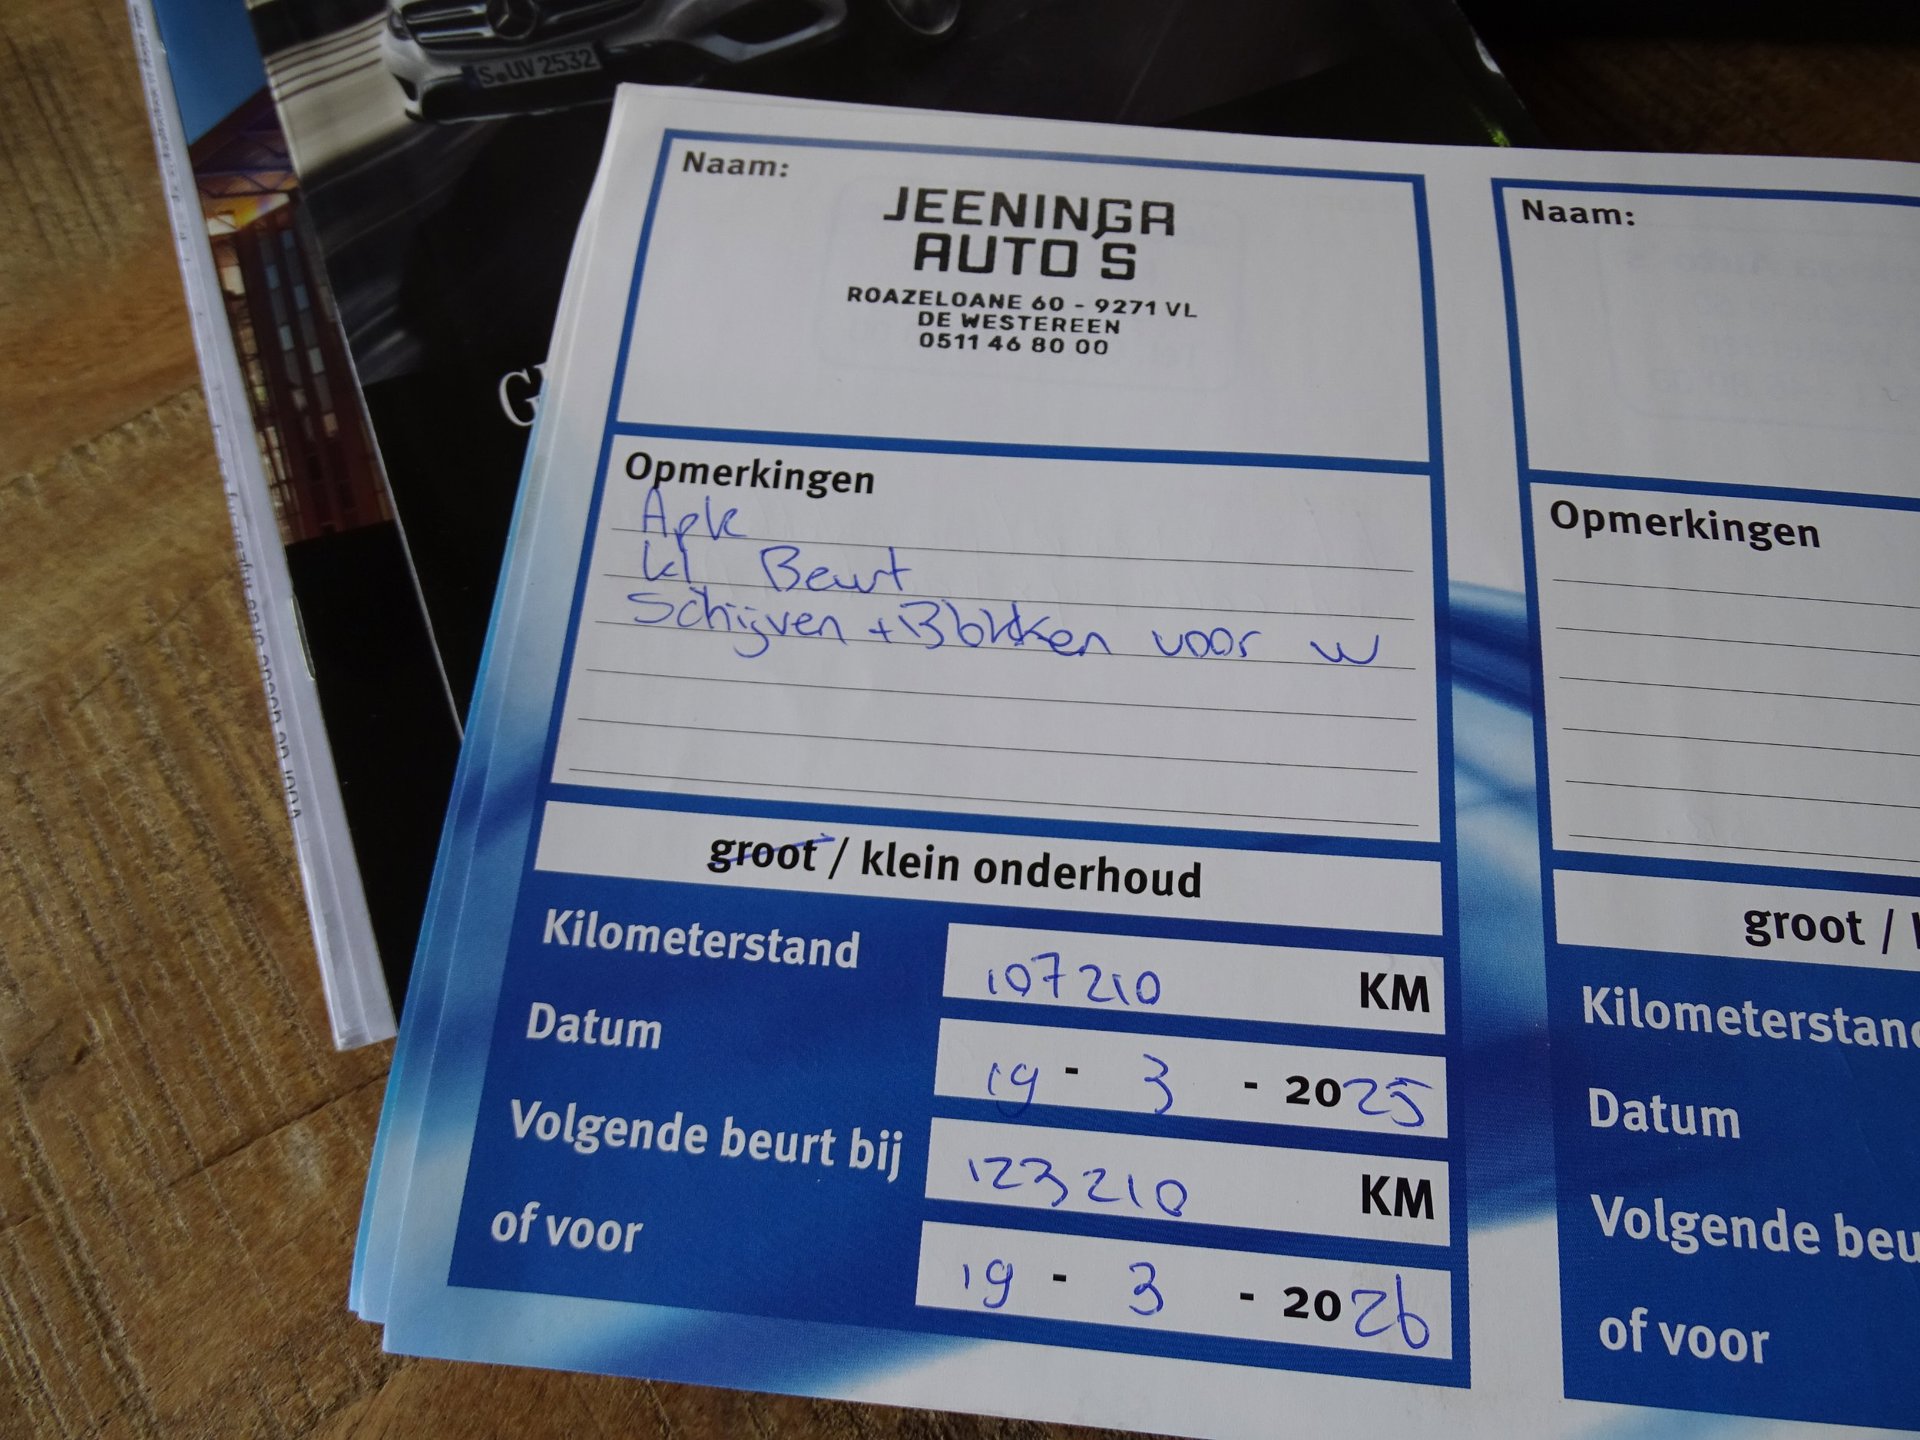 S UV 2532
Naam:
JEENINGA
AUTO'S
ROAZELOANE 60 - 9271 VL
DE WESTEREEN
0511 46 80 00
Opmerkingen
Apk
kl Beurt
Schijven + Blokken voor w
groot / klein onderhoud
Kilometerstand 107210 KM
Datum 19 - 3 - 2025
Volgende beurt bij 123210 KM
of voor 19 - 3 - 2026
Naam:
Opmerkingen
groot /
Kilometerstand
Datum
Volgende beu
of voor